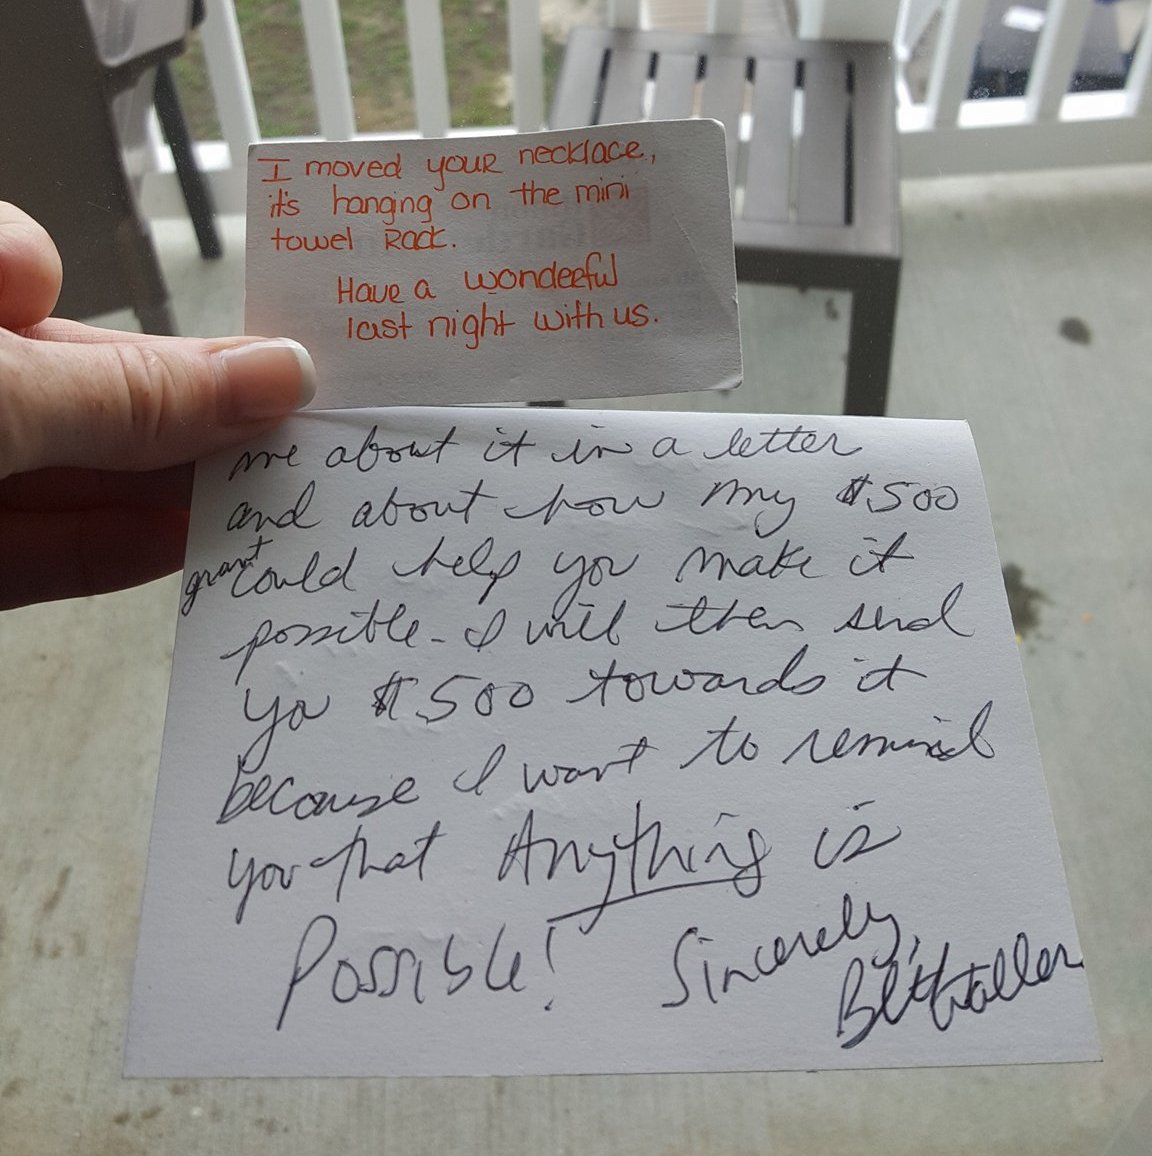 I moved your necklace,
it's hanging on the mini
towel Rack.
Have a wonderful
last night with us.
me about it in a letter
and about how my $500
grant
could help you make it
possible. I will then send
you $500 towards it
because I want to remind
you that Anything is
Possible!
Sincerely,